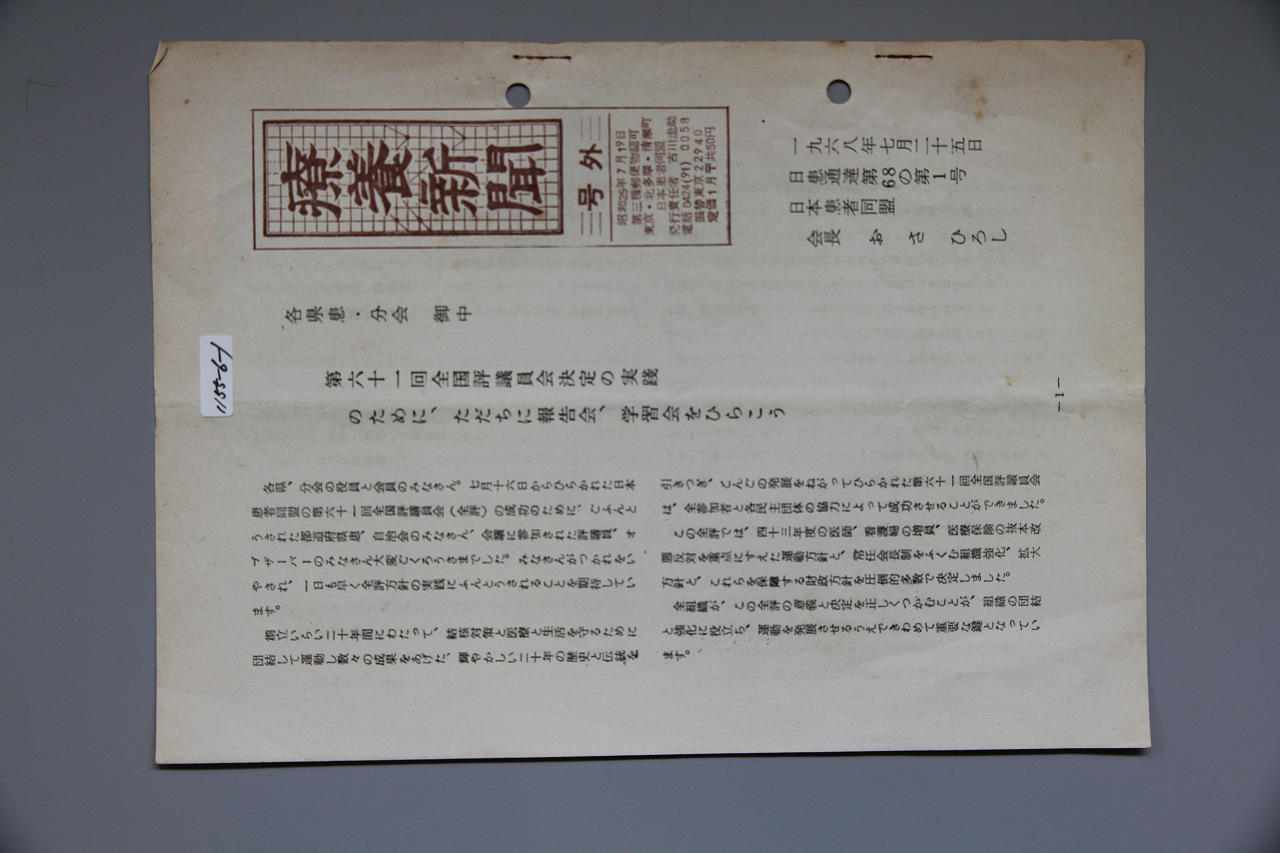 療養新聞
号外
昭和25年7月19日
第三種郵便物認可
東京・北多摩・清瀬町
日本患者同盟
発行責任者 古川圭助
電話0424(91)0058
振替東京22940
定価1月〒共50円
一九六八年七月二十五日
日患通達第68の第1号
日本患者同盟
会長 おさ ひろし
各県患・分会 御中
第六十一回全国評議員会決定の実践
のために、ただちに報告会、学習会をひらこう
各県、分会の役員と会員のみなさん。七月十六日からひらかれた日本
患者同盟の第六十一回全国評議員会(全評)の成功のために、ごふんと
うされた都道府県患、自治会のみなさん、会議に参加された評議員、オ
ブザーバーのみなさん大変ごくろうさまでした。みなさんがつかれをい
やされ、一日も早く全評方針の実践にふんとうされることを期待してい
ます。
創立いらい二十年間にわたって、結核対策と医療と生活を守るために
団結して運動し数々の成果をあげた、輝やかしい二十年の歴史と伝統を
引きつぎ、こんごの発展をねがってひらかれた第六十一回全国評議員会
は、全参加者と各民主団体の協力によって成功させることができました。
この全評では、四十三年度の医師、看護婦の増員、医療保険の抜本改
悪反対を重点にすえた運動方針と、常任会長制をふくむ組織強化、拡大
方針と、これらを保障する財政方針を圧倒的多数で決定しました。
全組織が、この全評の意義と決定を正しくつかむことが、組織の団結
と強化に役立ち、運動を発展させるうえできわめて重要な鍵となってい
ます。
-1-
1155-6-1